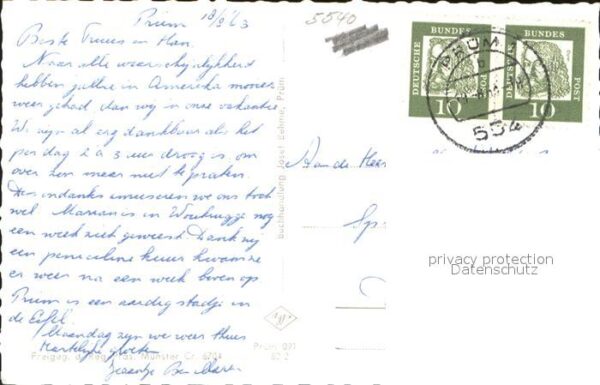 Prüm 18/8 63
5540
Beste Truus en Han.
Naar alle waarschijnlijkheid
hebben jullie in Amerika mooier
weer gehad dan wij in onze vakantie.
We zijn al erg dankbaar als het
per dag 2 a 3 uur droog is, om
over zon maar niet te praten.
Desondanks amuseren we ons toch
wel. Marian is in Woubrugge nog
een week ziek geweest. Dank zij
een penicilline kuur kwam ze
er weer na een week bovenop
Prüm is een aardig stadje in
de Eifel.
Maandag zijn we weer thuis
Hartelijke groeten
Buchhandlung Josef Behme, Prüm
Freigeg. d. Reg. Präs. Münster Cr. 6704
Prüm 091
62 2
DEUTSCHE BUNDESPOST
10
DEUTSCHE BUNDESPOST
10
PRÜM
554
Aan de Heer
Sp
privacy protection
Datenschutz